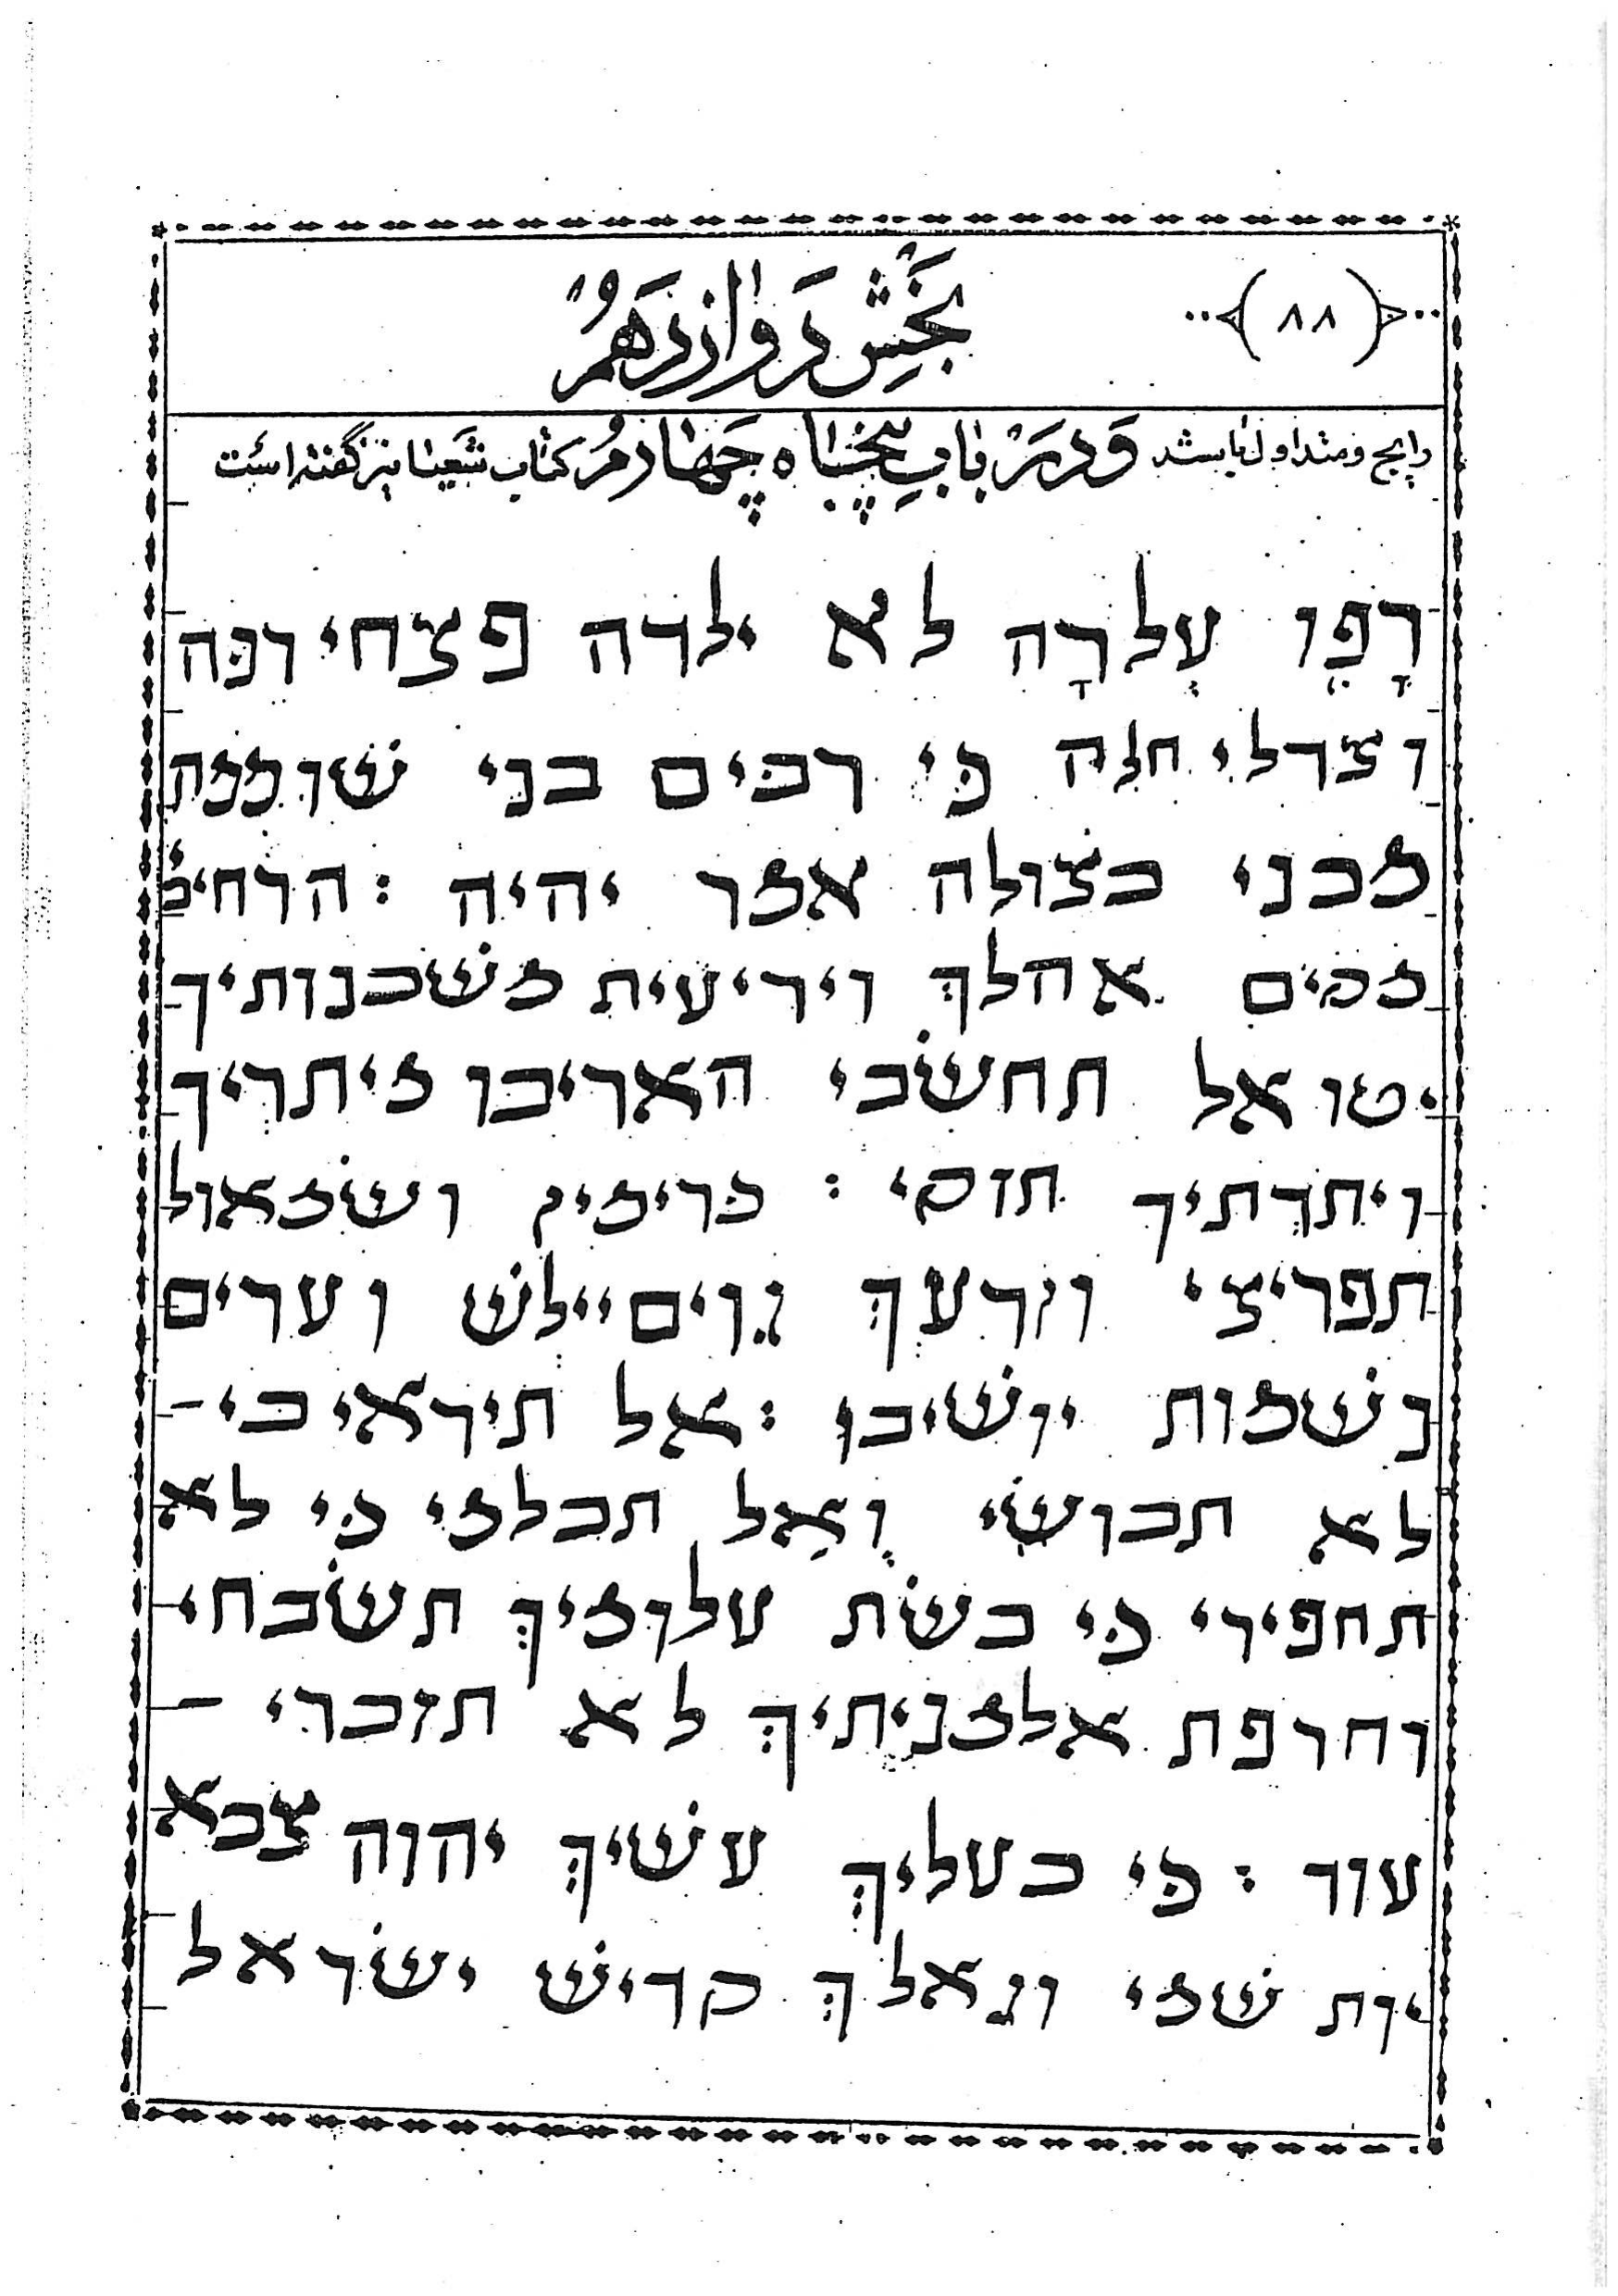 (٨٨)
بَخْش دَوازدَهُمْ
رایج و متداول باشد وَ دَرْ بابِ پنجاه چَهارُم کتاب شَعیا نیز گفته است
רָפֵו עְלרָה לא ילדה פצחי רנּה
וצהלי חלה כּי רבּים בני שׁוממת
מבני בצולה אמר יהיה : הרחיבי
מקים אהלךְ ויריעית משׁכנותיך
יטו אל תחשׂכי האריכו מיתריך
ויתדתיך חזקי : כּי ימין ושׂמאול
תפריצי וזרעךְ גּוים יילשׁ וערים
נשׁמות יושׁיבו : אל תיראי כי-
לא תבושׁי וְאַל תכלמי כּי לא
תחפירי כּי בשׂת עלומיךְ תשׂכחי-
וחרפת אלמניתיךְ לא תזכרי -
עוד : כּי בעליךְ עשׁיךְ יהוה צבא
יות שׁמי וגּאלךְ קדישׁ ישׂראל